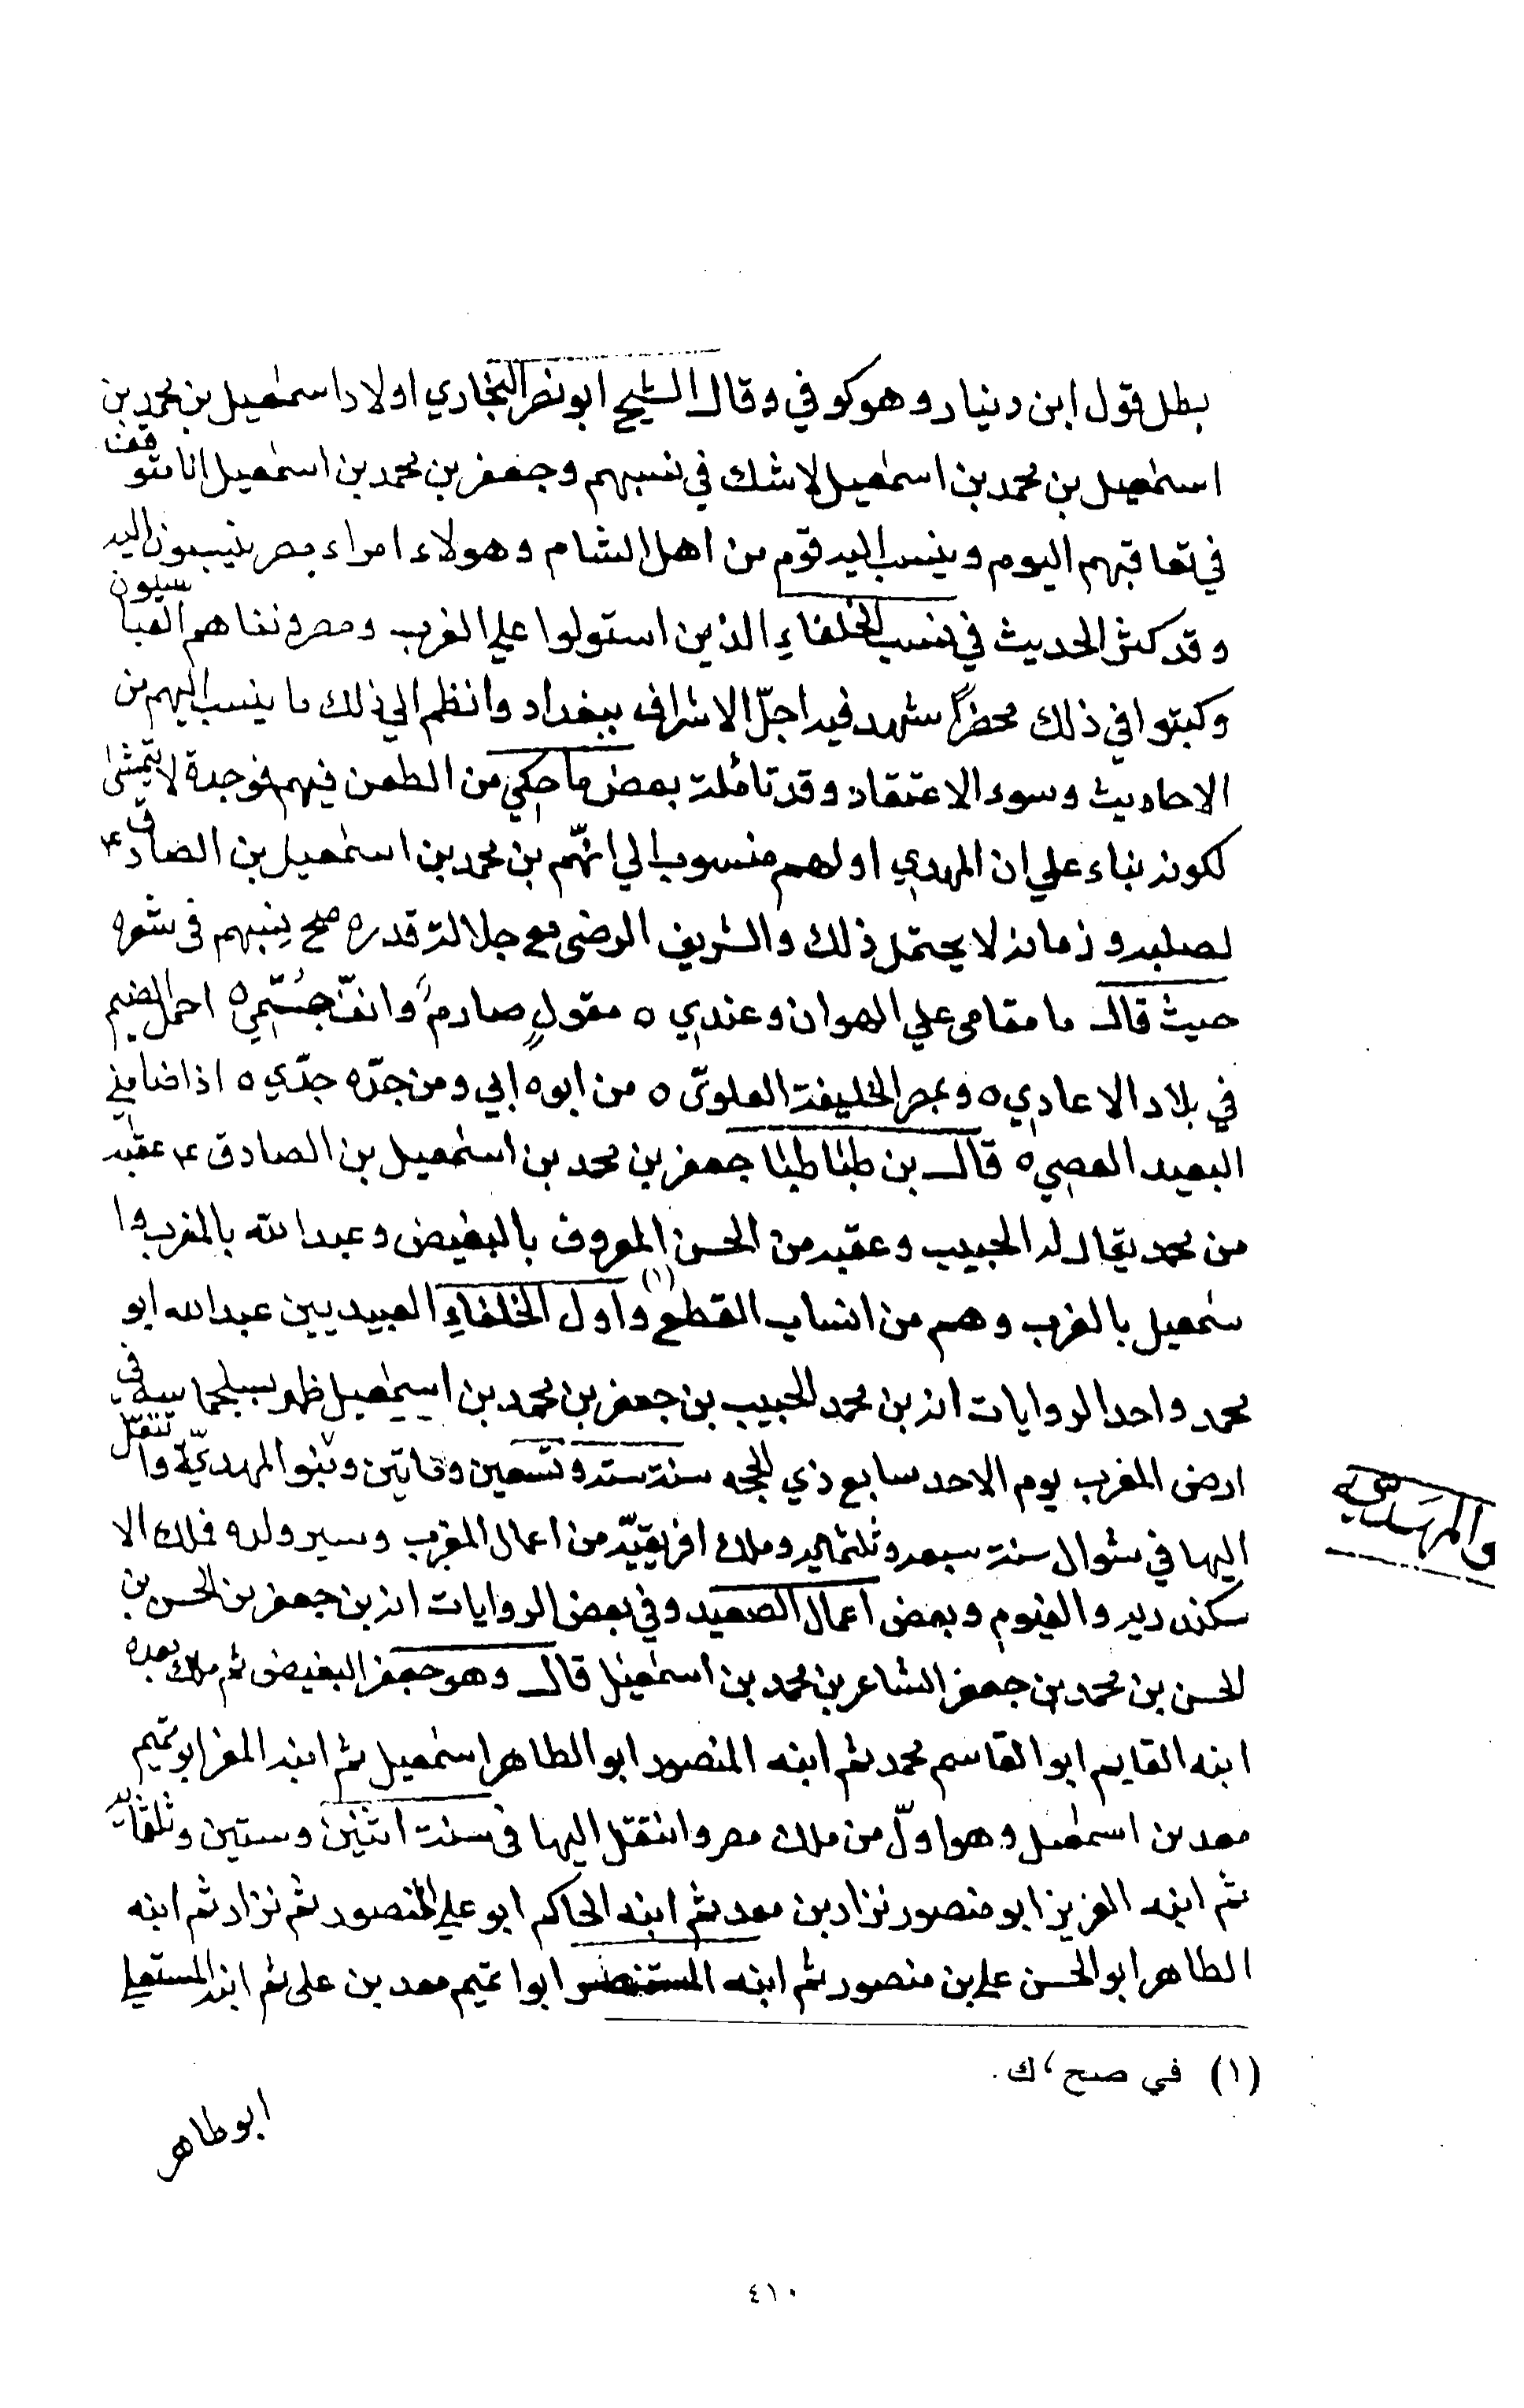 بطل قول ابن دينار وهو كوفي وقال الشيخ ابو نصر البخاري اولاد اسمعيل بن محمد بن
اسمعيل بن محمد بن اسمعيل لا شك في نسبهم وجعفر بن محمد بن اسمعيل انا متوقف
في تعاقبهم اليوم وينسب اليه قوم من اهل الشام وهولاء امراء بمصر ينسبون اليه
وقد كثر الحديث في نسب الخلفاء الذين استولوا علي الغرب ومصر ونفاهم العباسيون
وكتبوا في ذلك محضراً شهد فيه اجلّ الاشراف ببغداد وانظم الي ذلك ما ينسب اليهم من
الاحاديث وسوء الاعتقاد وقد تاملت بعض ما حكي من الطعن فيهم فوجدة لا يتمشى
لكونه بناء علي ان المهدي اولهم منسوب الي انهّم بن محمد بن اسمعيل بن الصادق ع
لصلبه وزمانه لا يحتمل ذلك والشريف الرضى مع جلالة قدره صح ينبهم فى شعره
حيث قال ما مقامى علي الهوان وعندي ه مقولٍ صارمٌ وانفّ حُمّي ه احمل الضيم
في بلاد الاعادي ه وبمصر الخليفة العلوىّ ه من ابوه ابي ومن جدّه جدّي ه اذا ضامني
البعيد العصي ه قال بن طباطبا جعفر بن محمد بن اسمعيل بن الصادق ع عقبه
من محمد يقال له الحبيب وعقبه من الحسن المعروف بالبغيض وعبدالله بالمغرب وا
سمعيل بالغرب وهم من انساب القطع (١) واول الخلفاء العبيديين عبدالله ابو
محمد واحد الروايات انه بن محمد الحبيب بن جعفر بن محمد بن اسمعيل ظهر بسلجماسة في
ارض المغرب يوم الاحد سابع ذي الحجه سنة ستة وتسعين ومايتين وبنو المهديّة وانتقل
اليها في شوال سنة سبعه وثلثمايه وملك افريقيّه من اعمال المغرب وسير ولده فملك الا
سكندريه والفيوم وبعض اعمال الصعيد وفي بعض الروايات انه بن جعفر بن الحسن بن
الحسن بن محمد بن جعفر الشاعر بن محمد بن اسمعيل قال وهو جعفر البغيض ثم ملك بعده
ابنه القايم ابو القاسم محمد ثم ابنه المنصور ابو الطاهر اسمعيل ثم ابنه المعز ابو تميم
معد بن اسمعيل وهو اولّ من ملك مصر وانتقل اليها فى سنة اثنين وستين وثلثمايه
ثم ابنه العزيز ابو منصور نزار بن معد ثم ابنه الحاكم ابو علي المنصور ثم نزار ثم ابنه
الطاهر ابو الحسن علي بن منصور ثم ابنه المستنصر ابوا تميم معد بن على ثم ابنه المستعلي
والمهديه
(١) في صح، ك.
ابو طاهر
٤١٠